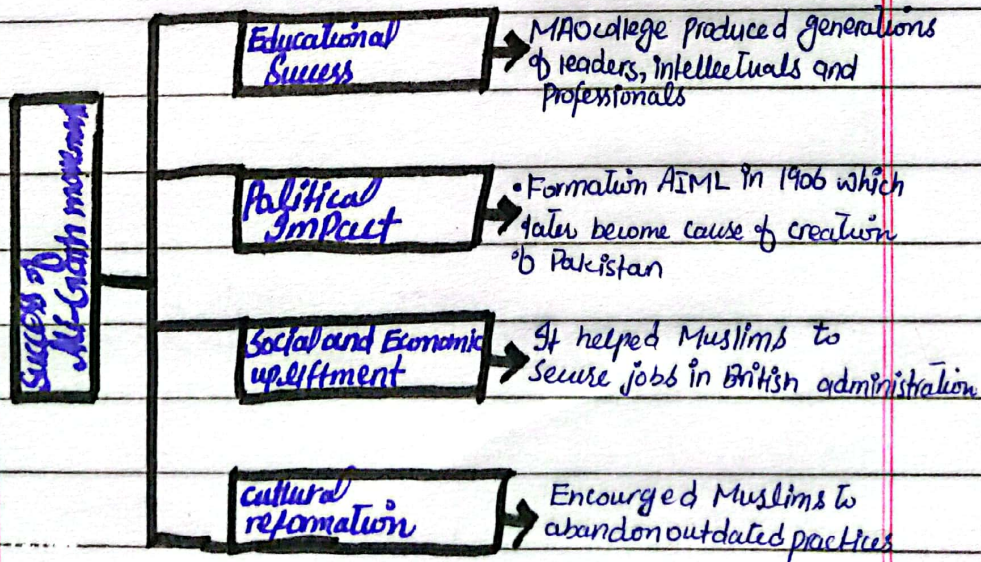 Success of
Ali-Garh movement
Educational
Success
MAO college produced generations
of leaders, intellectuals and
Professionals
Political
Impact
• Formation AIML in 1906 which
later become cause of creation
of Pakistan
Social and Economic
upliftment
It helped Muslims to
secure jobs in British administration
Cultural
reformation
Encourged Muslims to
abandon outdated practices